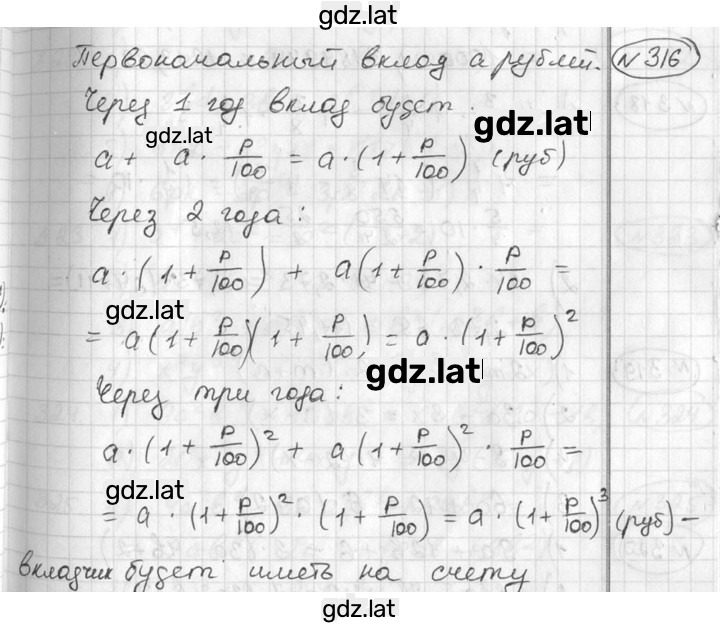 gdz.lat
Первоначальный вклад a рублей. №316
Через 1 год вклад будет
gdz.lat
gdz.lat
a + a · P/100 = a · (1 + P/100) (руб)
Через 2 года:
a · (1 + P/100) + a(1 + P/100) · P/100 =
gdz.lat
= a(1 + P/100)(1 + P/100) = a · (1 + P/100)²
gdz.lat
Через три года:
a · (1 + P/100)² + a(1 + P/100)² · P/100 =
gdz.lat
= a · (1 + P/100)² · (1 + P/100) = a · (1 + P/100)³ (руб) –
вкладчик будет иметь на счету
gdz.lat